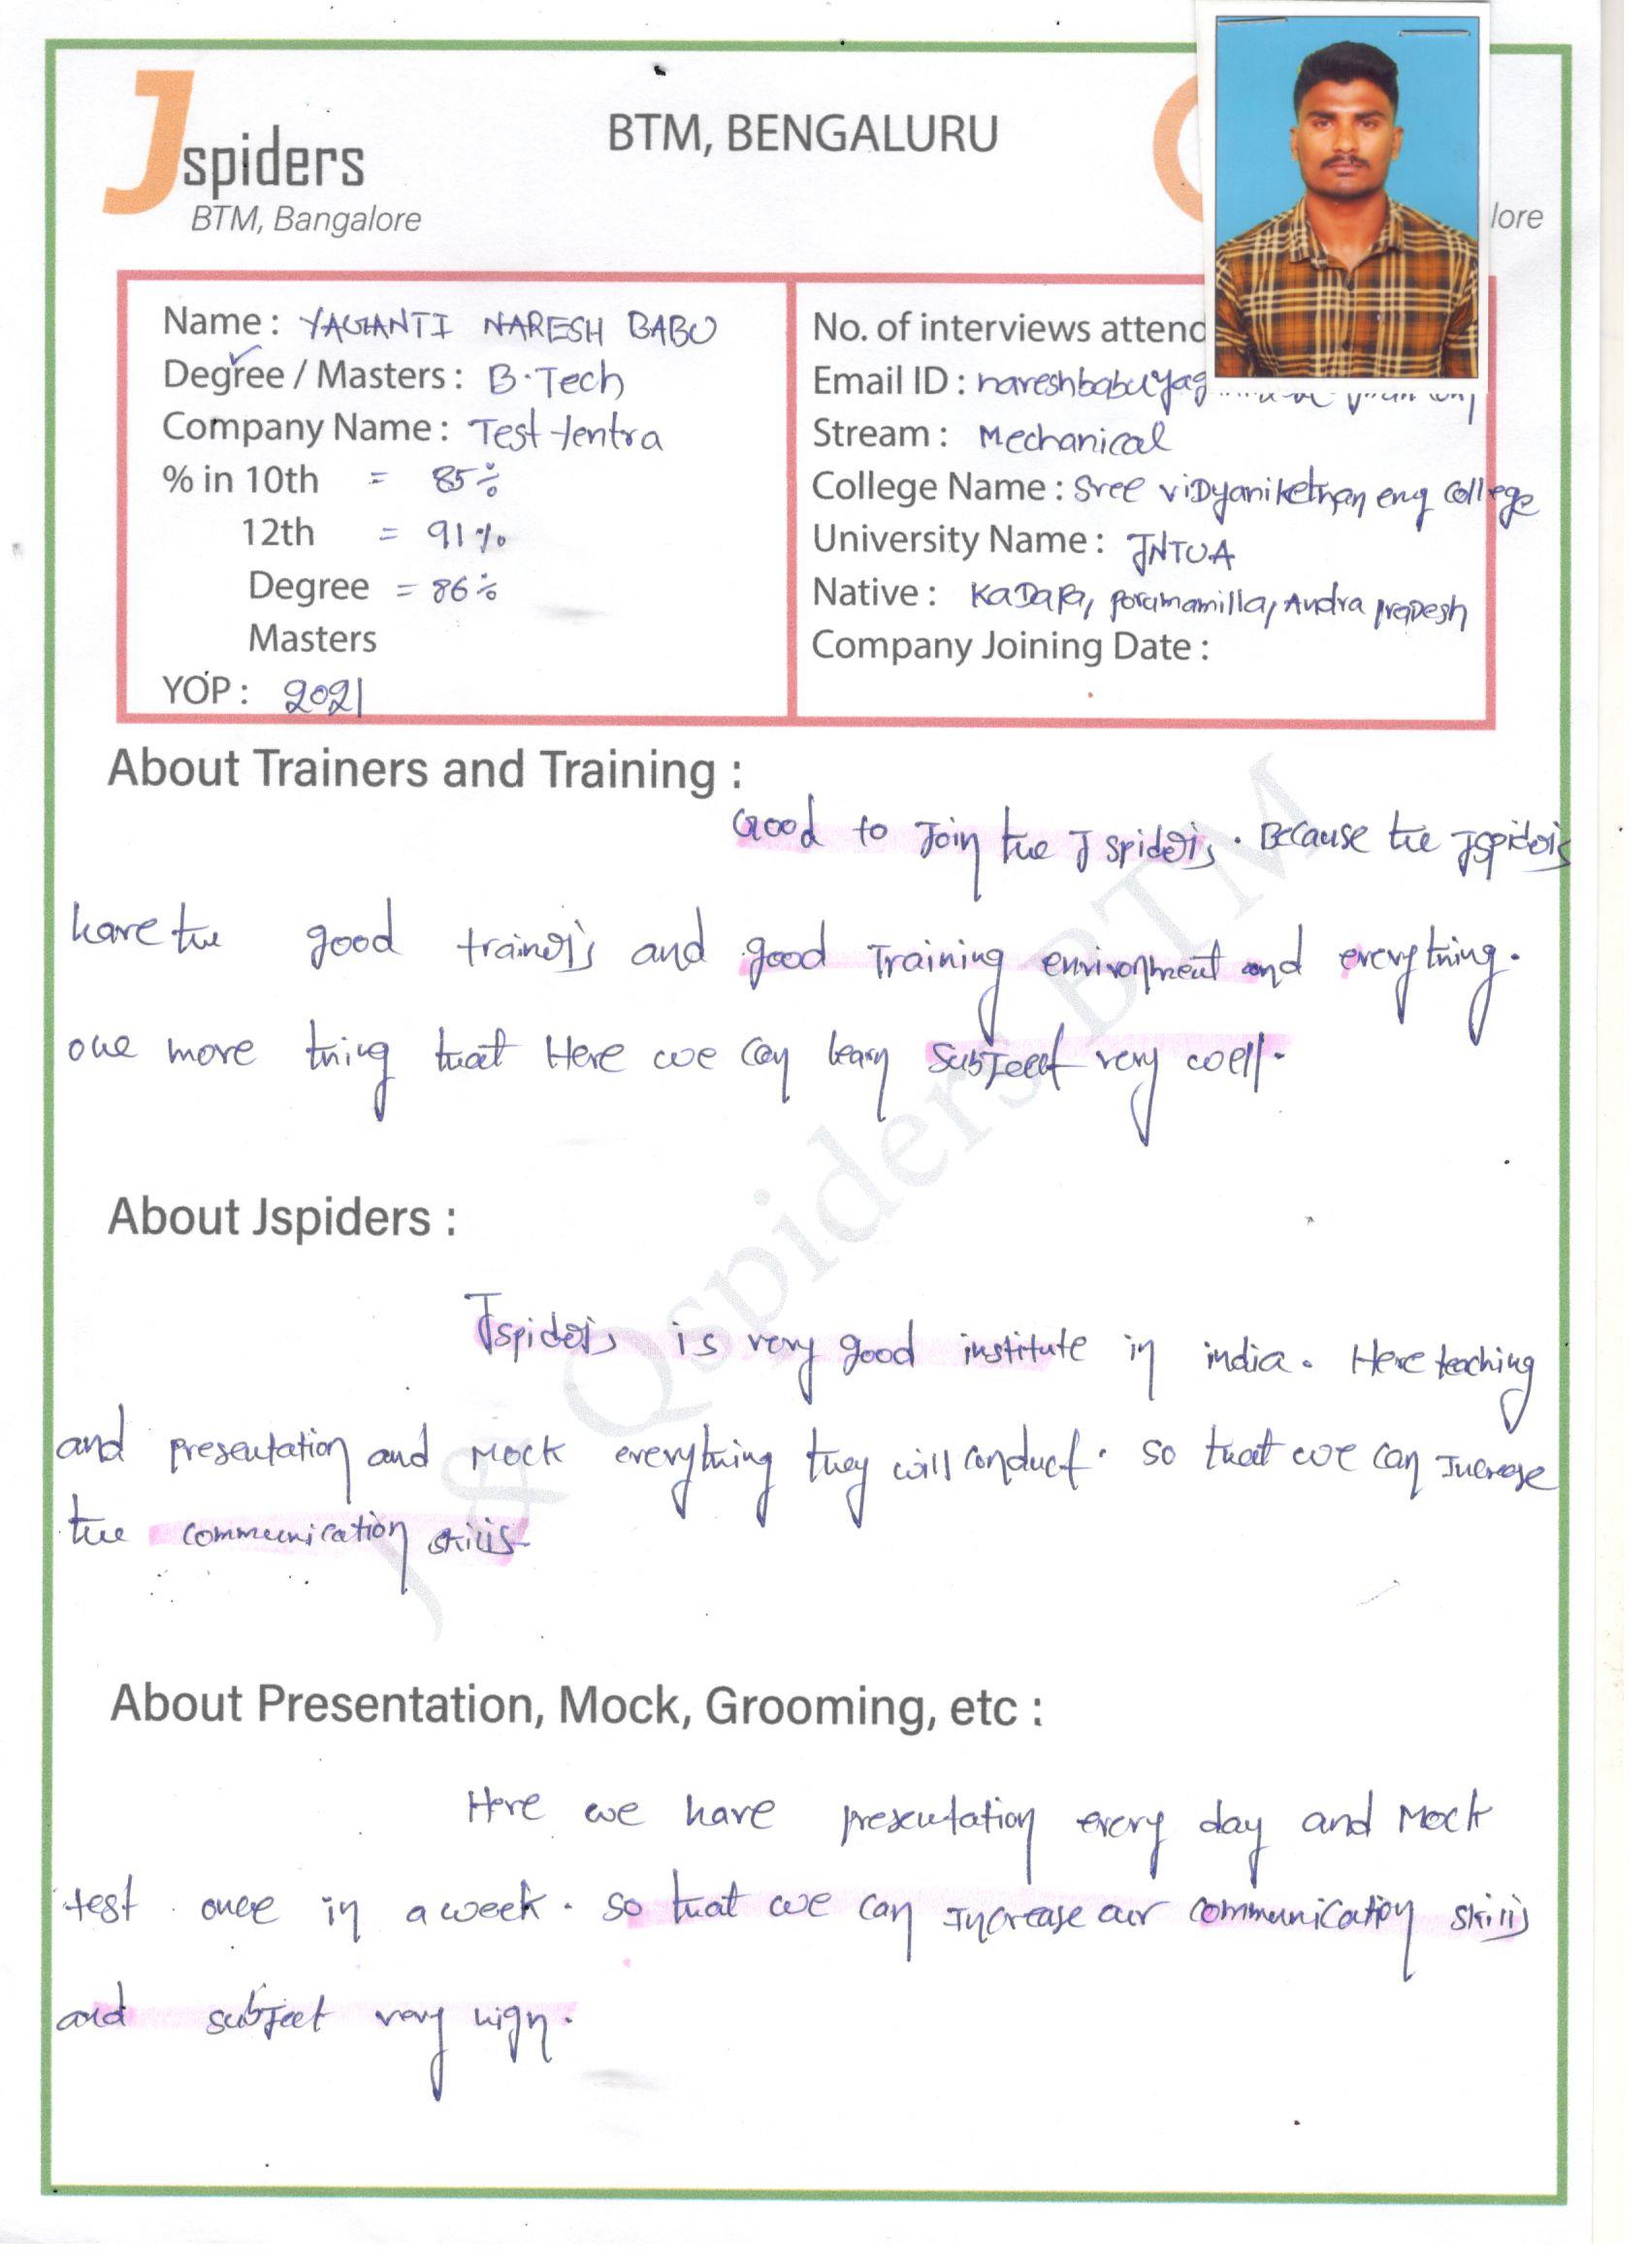 Jspiders
BTM, Bangalore
BTM, BENGALURU
lore
Name : YAGANTI NARESH BABU
Degree / Masters : B.Tech
Company Name : Test
% in 10th = 85%
12th = 91%
Degree = 86%
Masters
YOP : 2021
No. of interviews attend
Email ID : nareshbabuyag
Stream : Mechanical
College Name : Sree viDyaniketnan eng college
University Name : JNTUA
Native : KaDapa, porumamilla, Andra pradesh
Company Joining Date :
About Trainers and Training :
Good to Join the Jspiders. Because the Jspiders
have the good trainers and good Training environment and everything.
one more thing that Here we can learn subject very well.
About Jspiders :
Jspiders is very good institute in india. Here teaching
and presentation and Mock everything they will conduct. so that we can Increase
the communication skills
About Presentation, Mock, Grooming, etc :
Here we have presentation every day and Mock
test once in a week. so that we can Increase our communication skills
and subject very high.
J & Qspiders BTM